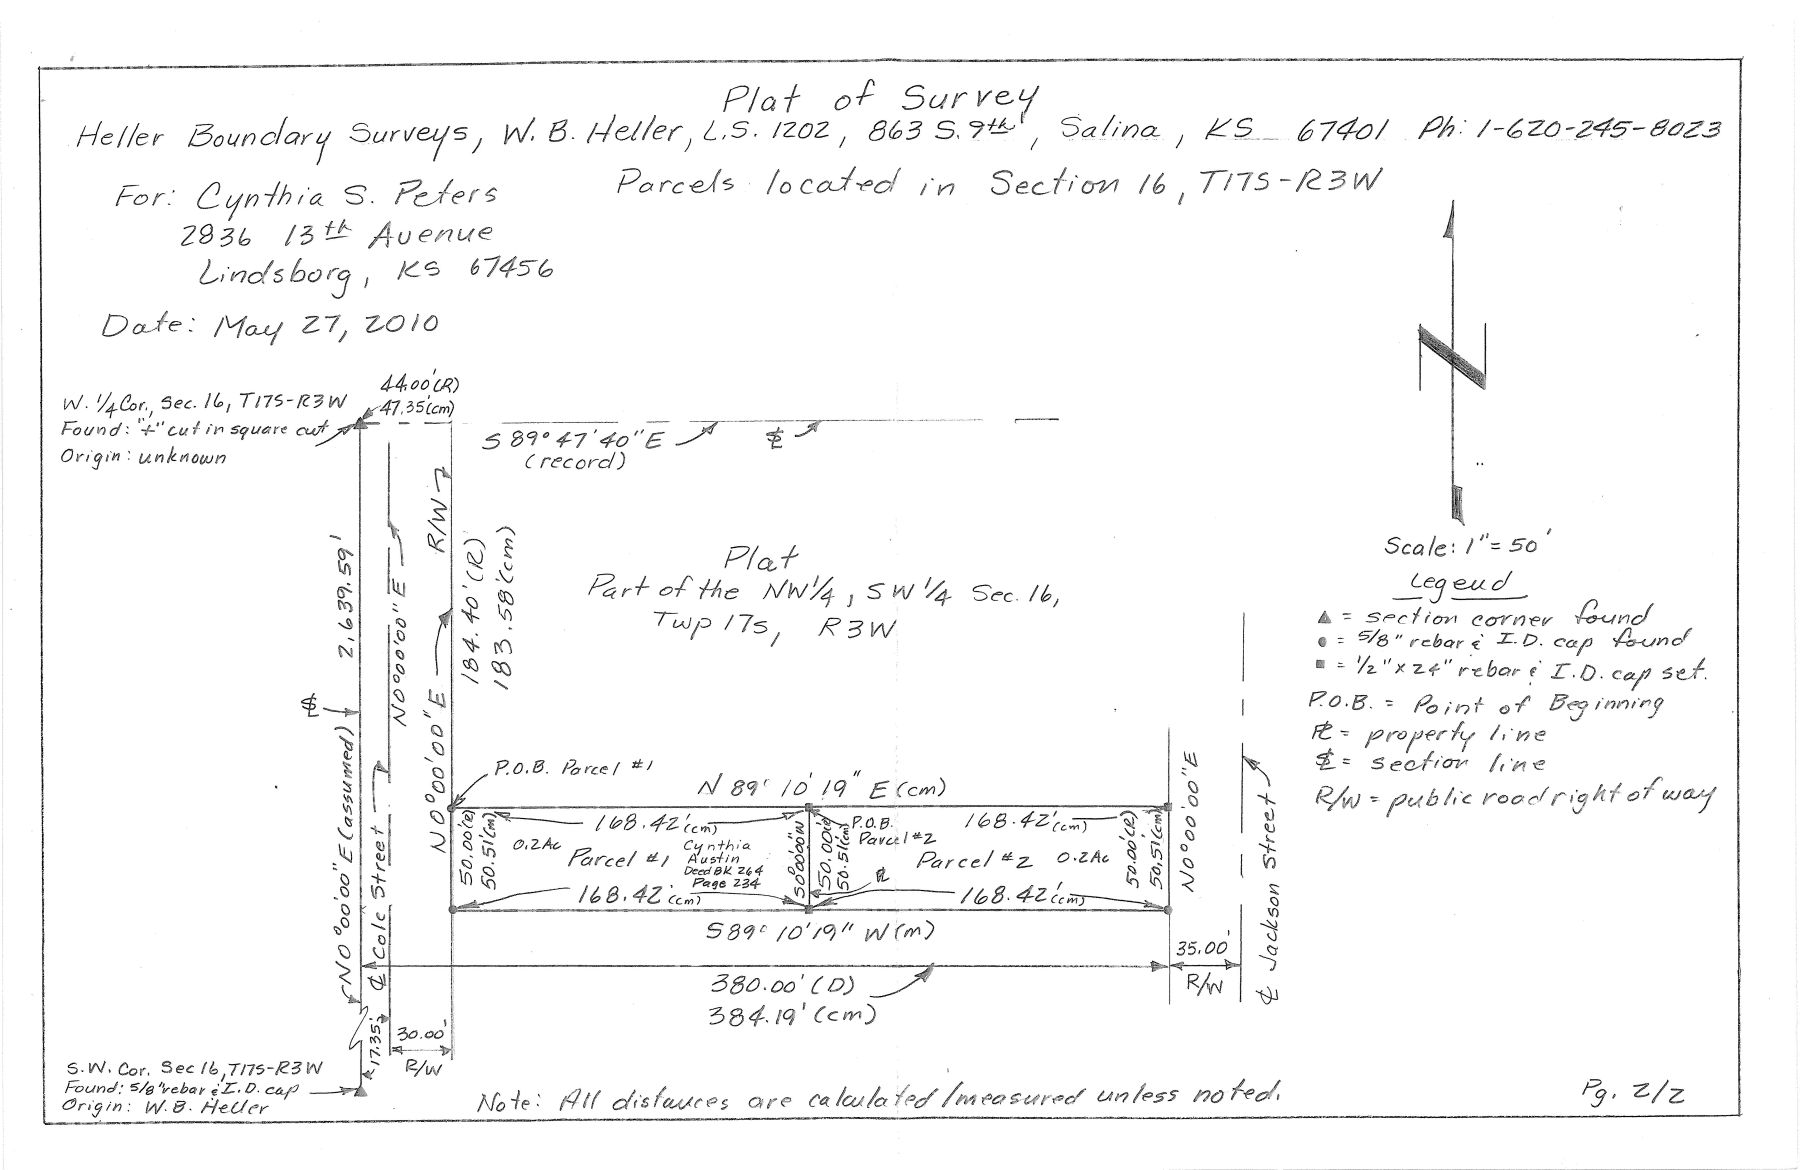 Plat of Survey
Heller Boundary Surveys, W. B. Heller, L.S. 1202, 863 S. 9th, Salina, KS 67401 Ph: 1-620-245-8023
For: Cynthia S. Peters
2836 13th Avenue
Lindsborg, KS 67456
Parcels located in Section 16, T17S-R3W
Date: May 27, 2010
W. 1/4 Cor., Sec. 16, T17S-R3W
Found: "+" cut in square cut
Origin: unknown
44.00'(R)
47.35'(cm)
S 89° 47' 40" E
(record)
℄
R/W
2,639.59'
N0°00'00"E
N0°00'00"E
184.40'(R)
183.58'(cm)
Plat
Part of the NW1/4, SW1/4 Sec. 16,
Twp 17s, R3W
Scale: 1" = 50'
Legend
▲ = section corner found
● = 5/8" rebar & I.D. cap found
■ = 1/2" x 24" rebar & I.D. cap set.
P.O.B. = Point of Beginning
PL = property line
SL = section line
R/W = public road right of way
SL
N0°00'00"E (assumed)
℄ Cole Street
P.O.B. Parcel #1
N 89° 10' 19" E (cm)
50.00'(R)
50.51'(cm)
168.42'(cm)
0.2Ac
Parcel #1
Cynthia
Austin
Deed BK 264
Page 234
168.42'(cm)
S0°00'00"W
50.00'(R)
50.51'(cm)
P.O.B.
Parcel #2
PL
168.42'(cm)
Parcel #2 0.2Ac
168.42'(cm)
50.00'(R)
50.51'(cm)
N0°00'00"E
℄ Jackson Street
S89° 10' 19" W (m)
380.00' (D)
384.19' (cm)
35.00'
R/W
17.35'
30.00'
R/W
S.W. Cor. Sec 16, T17S-R3W
Found: 5/8" rebar & I.D. cap
Origin: W.B. Heller
Note: All distances are calculated/measured unless noted.
Pg. 2/2